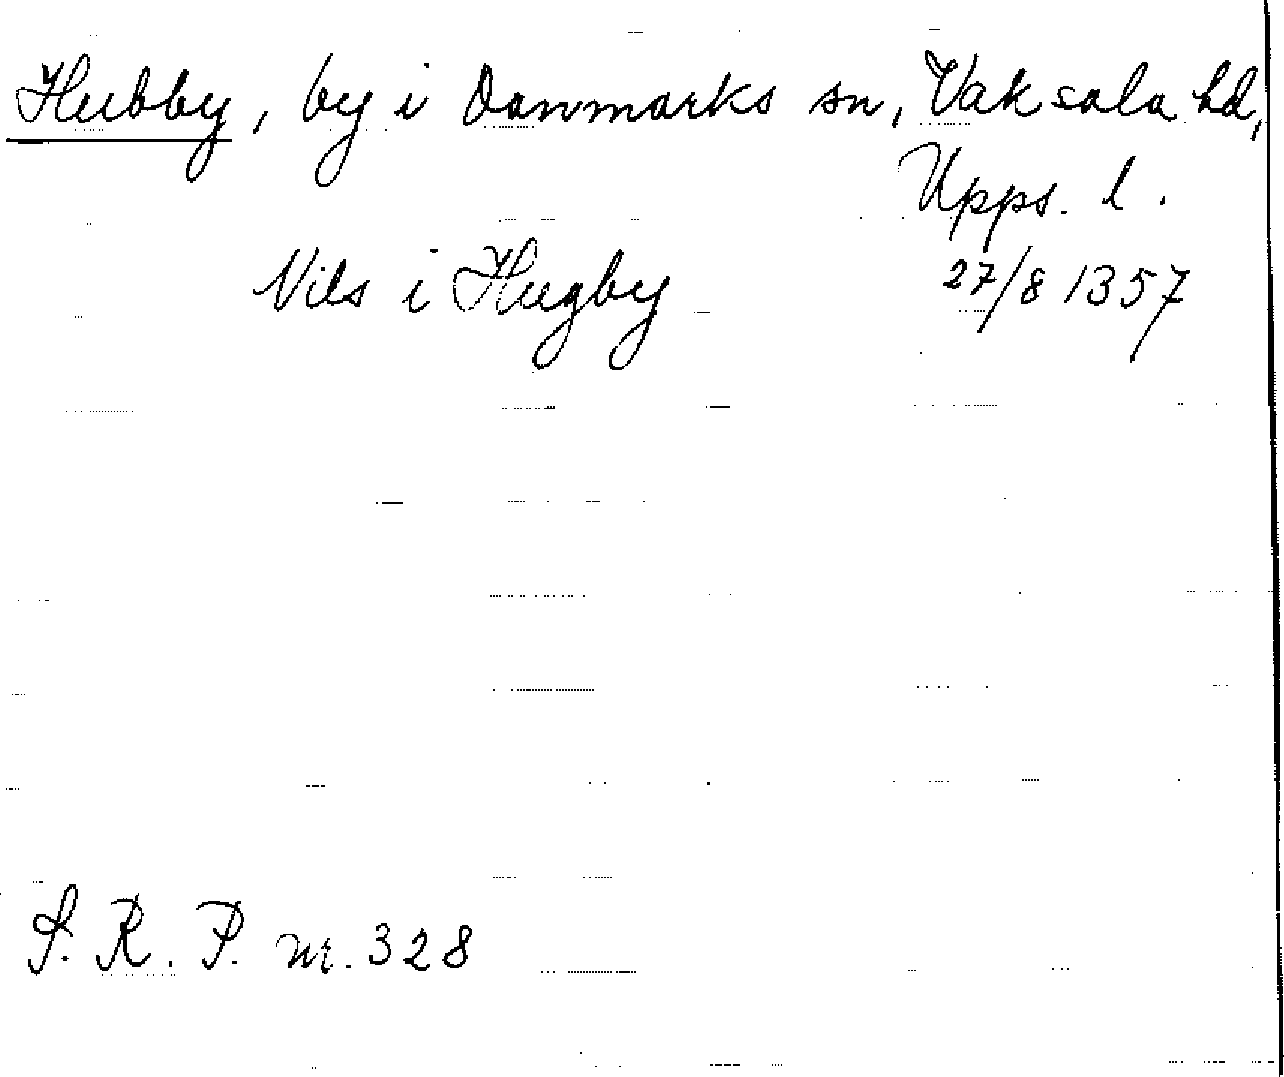 Hubby, by i Danmarks sn, Vaksala hd,
Upps. l.
Nils i Hugby 27/8 1357
S. R. P. nr. 328